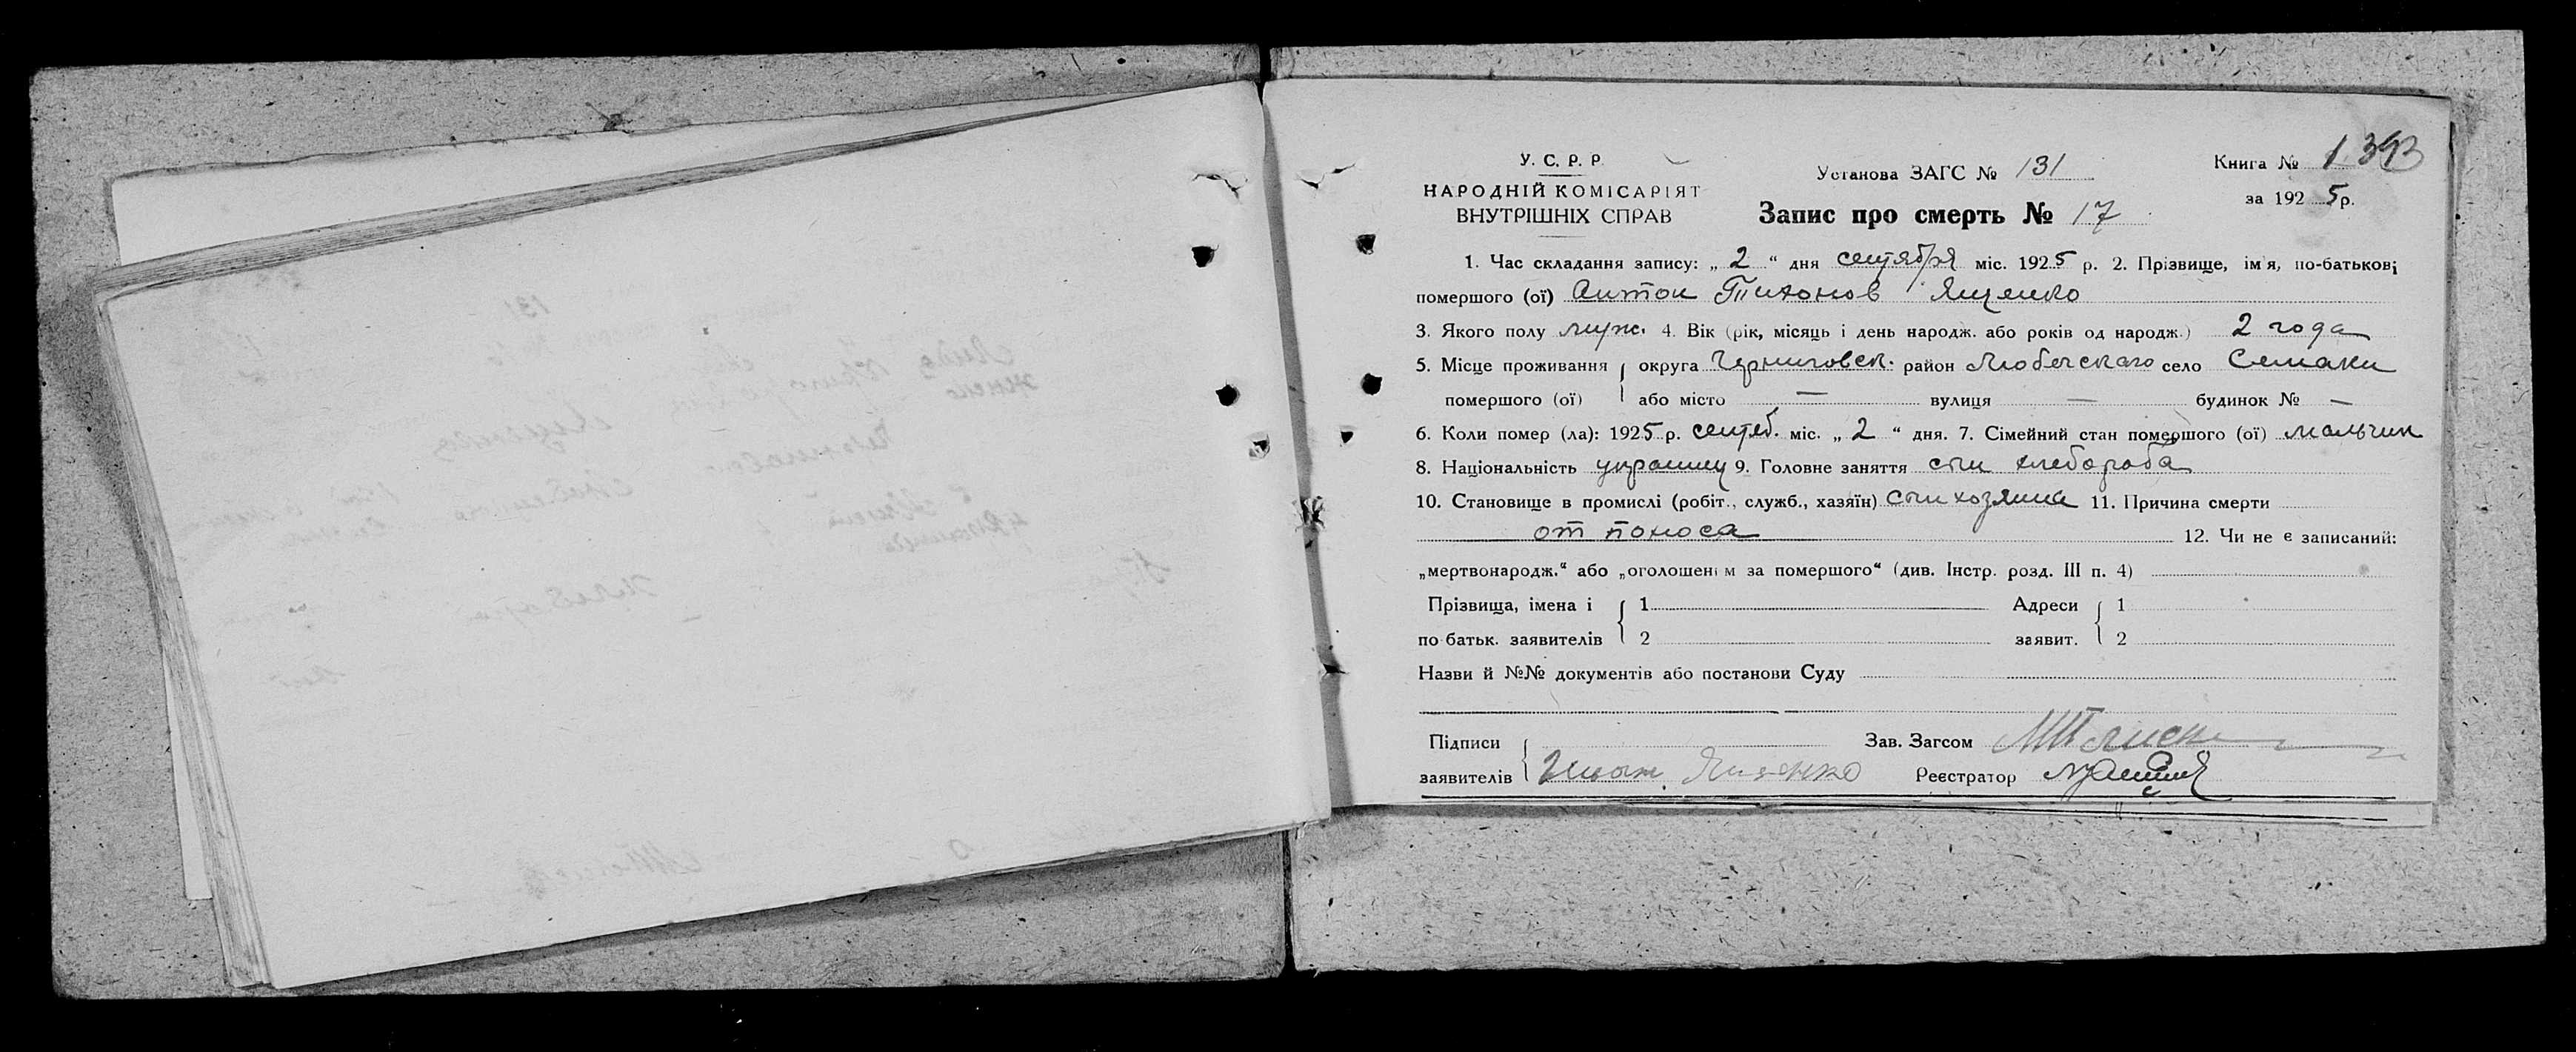 У. С. Р. Р.
НАРОДНІЙ КОМІСАРІЯТ
ВНУТРІШНІХ СПРАВ
Установа ЗАГС № 131
Запис про смерть № 17
Книга № 1
за 1925 р.
1. Час складання запису: „ 2 “ дня сентября міс. 1925 р. 2. Прізвище, ім'я, по-батькові
помершого (ої) Антон Тихонов Ященко
3. Якого полу муж. 4. Вік (рік, місяць і день народж. або років од народж.) 2 года
5. Місце проживання { округа Черниговск. район Любечскаго село Семаки
помершого (ої) або місто — вулиця — будинок № —
6. Коли помер (ла): 1925 р. сентяб. міс. „ 2 “ дня. 7. Сімейний стан помершого (ої) мальчик
8. Національність украинец 9. Головне заняття сын хлебороба
10. Становище в промислі (робіт., служб., хазяїн) сын хозяина 11. Причина смерти
от поноса 12. Чи не є записаний:
„мертвонародж.“ або „оголошенім за помершого“ (див. Інстр. розд. III п. 4)
Прізвища, імена і { 1 Адреси { 1
по батьк. заявителів 2 заявит. 2
Назви й №№ документів або постанови Суду
Підписи { Зав. Загсом
заявителів Ященко Реєстратор